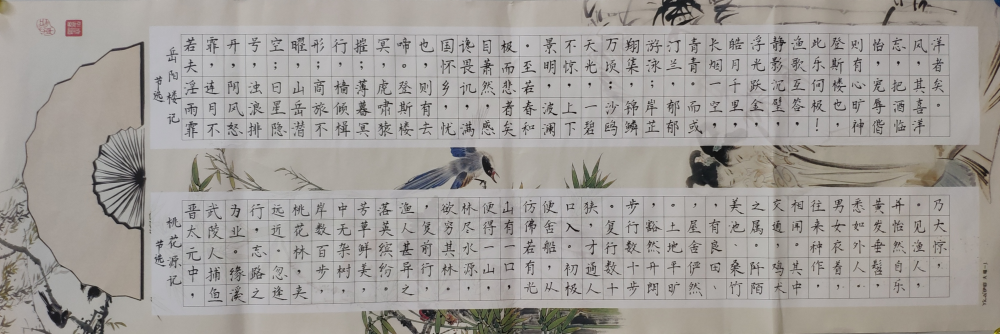 岳阳楼记
节选
若夫淫雨霏
霏,连月不
开,阴风怒
号,浊浪排
空;日星隐
曜,山岳潜
形;商旅不
行,樯倾楫
摧;薄暮冥
冥,虎啸猿
啼。登斯楼
也,则有去
国怀乡,忧
谗畏讥,满
目萧然,感
极而悲者矣
。至若春和
景明,波澜
不惊,上下
天光,一碧
万顷;沙鸥
翔集,锦鳞
游泳;岸芷
汀兰,郁郁
青青。而或
长烟一空,
皓月千里,
浮光跃金,
静影沉璧,
渔歌互答,
此乐何极!
登斯楼也,
则有心旷神
怡,宠辱偕
忘,把酒临
风,其喜洋
洋者矣。
桃花源记
节选
晋太元中,
武陵人捕鱼
为业。缘溪
行,忘路之
远近。忽逢
桃花林,夹
岸数百步,
中无杂树,
芳草鲜美,
落英缤纷。
渔人甚异之
,复前行,
欲穷其林。
林尽水源,
便得一山,
山有小口,
仿佛若有光
便舍船,从
口入。初极
狭,才通人
。复行数十
步,豁然开朗
。土地平旷
,屋舍俨然
,有良田、
美池、桑竹
之属。阡陌
交通,鸡犬
相闻。其中
往来种作,
男女衣着,
悉如外人。
黄发垂髫,
并怡然自乐
。见渔人,
乃大惊,